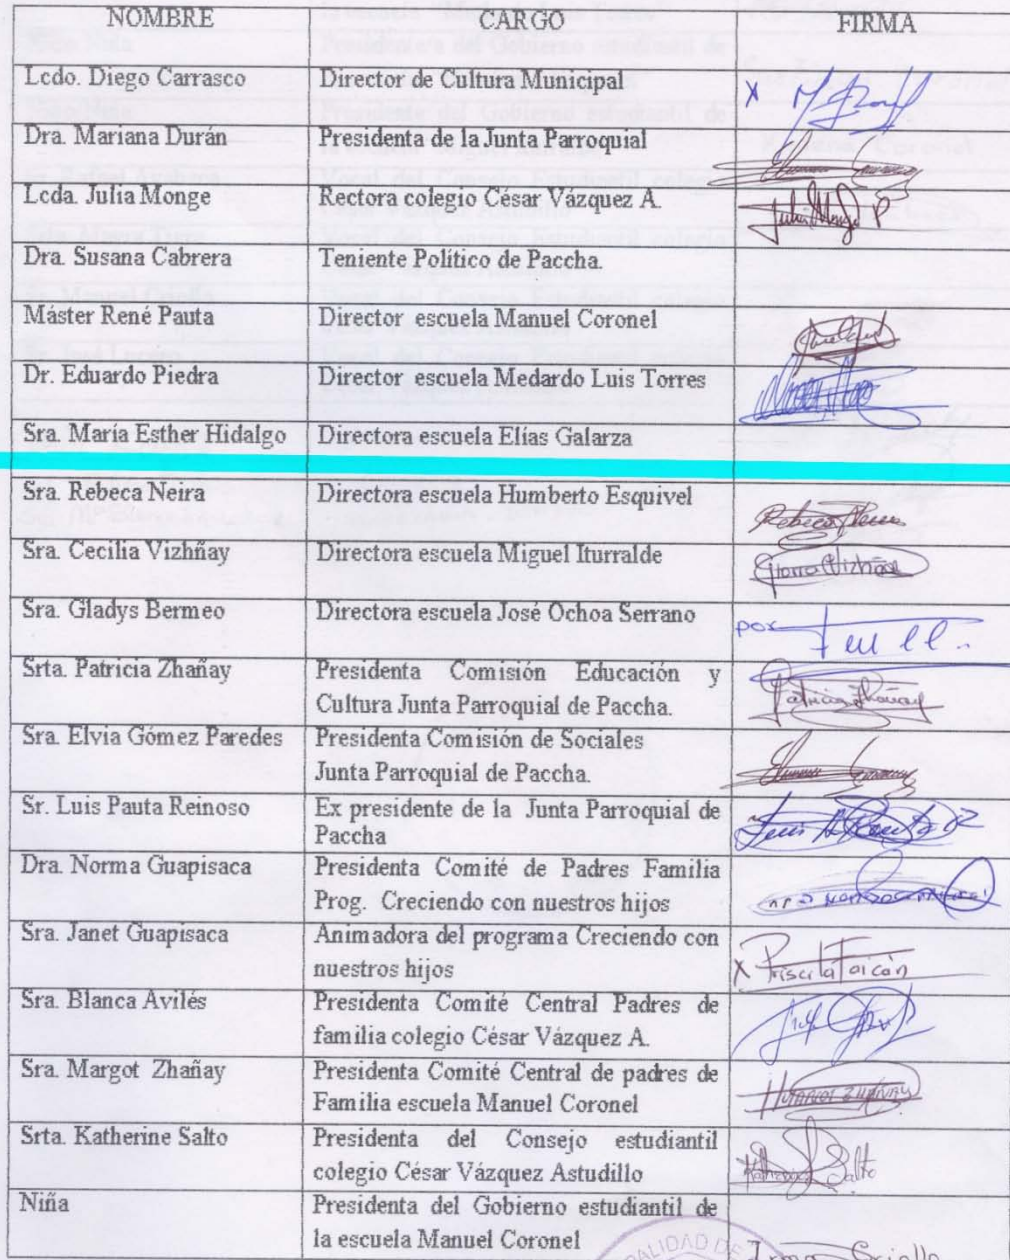 NOMBRE CARGO FIRMA
Lcdo. Diego Carrasco Director de Cultura Municipal X
Dra. Mariana Durán Presidenta de la Junta Parroquial
Lcda. Julia Monge Rectora colegio César Vázquez A. Julia Monge P
Dra. Susana Cabrera Teniente Político de Paccha.
Máster René Pauta Director escuela Manuel Coronel
Dr. Eduardo Piedra Director escuela Medardo Luis Torres
Sra. María Esther Hidalgo Directora escuela Elías Galarza
Sra. Rebeca Neira Directora escuela Humberto Esquivel Rebeca Neira
Sra. Cecilia Vizhñay Directora escuela Miguel Iturralde
Sra. Gladys Bermeo Directora escuela José Ochoa Serrano por
Srta. Patricia Zhañay Presidenta Comisión Educación y
Cultura Junta Parroquial de Paccha. Patricia Zhañay
Sra. Elvia Gómez Paredes Presidenta Comisión de Sociales
Junta Parroquial de Paccha.
Sr. Luis Pauta Reinoso Ex presidente de la Junta Parroquial de
Paccha Luis
Dra. Norma Guapisaca Presidenta Comité de Padres Familia
Prog. Creciendo con nuestros hijos
Sra. Janet Guapisaca Animadora del programa Creciendo con
nuestros hijos X Priscila Faicán
Sra. Blanca Avilés Presidenta Comité Central Padres de
familia colegio César Vázquez A.
Sra. Margot Zhañay Presidenta Comité Central de padres de
Familia escuela Manuel Coronel
Srta. Katherine Salto Presidenta del Consejo estudiantil
colegio César Vázquez Astudillo Katherine Salto
Niña Presidenta del Gobierno estudiantil de
la escuela Manuel Coronel Irma Criollo